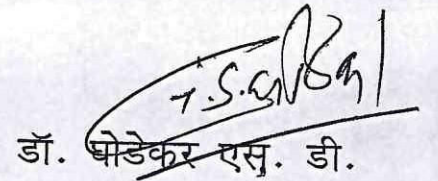 डॉ. घोडेकर एस. डी.